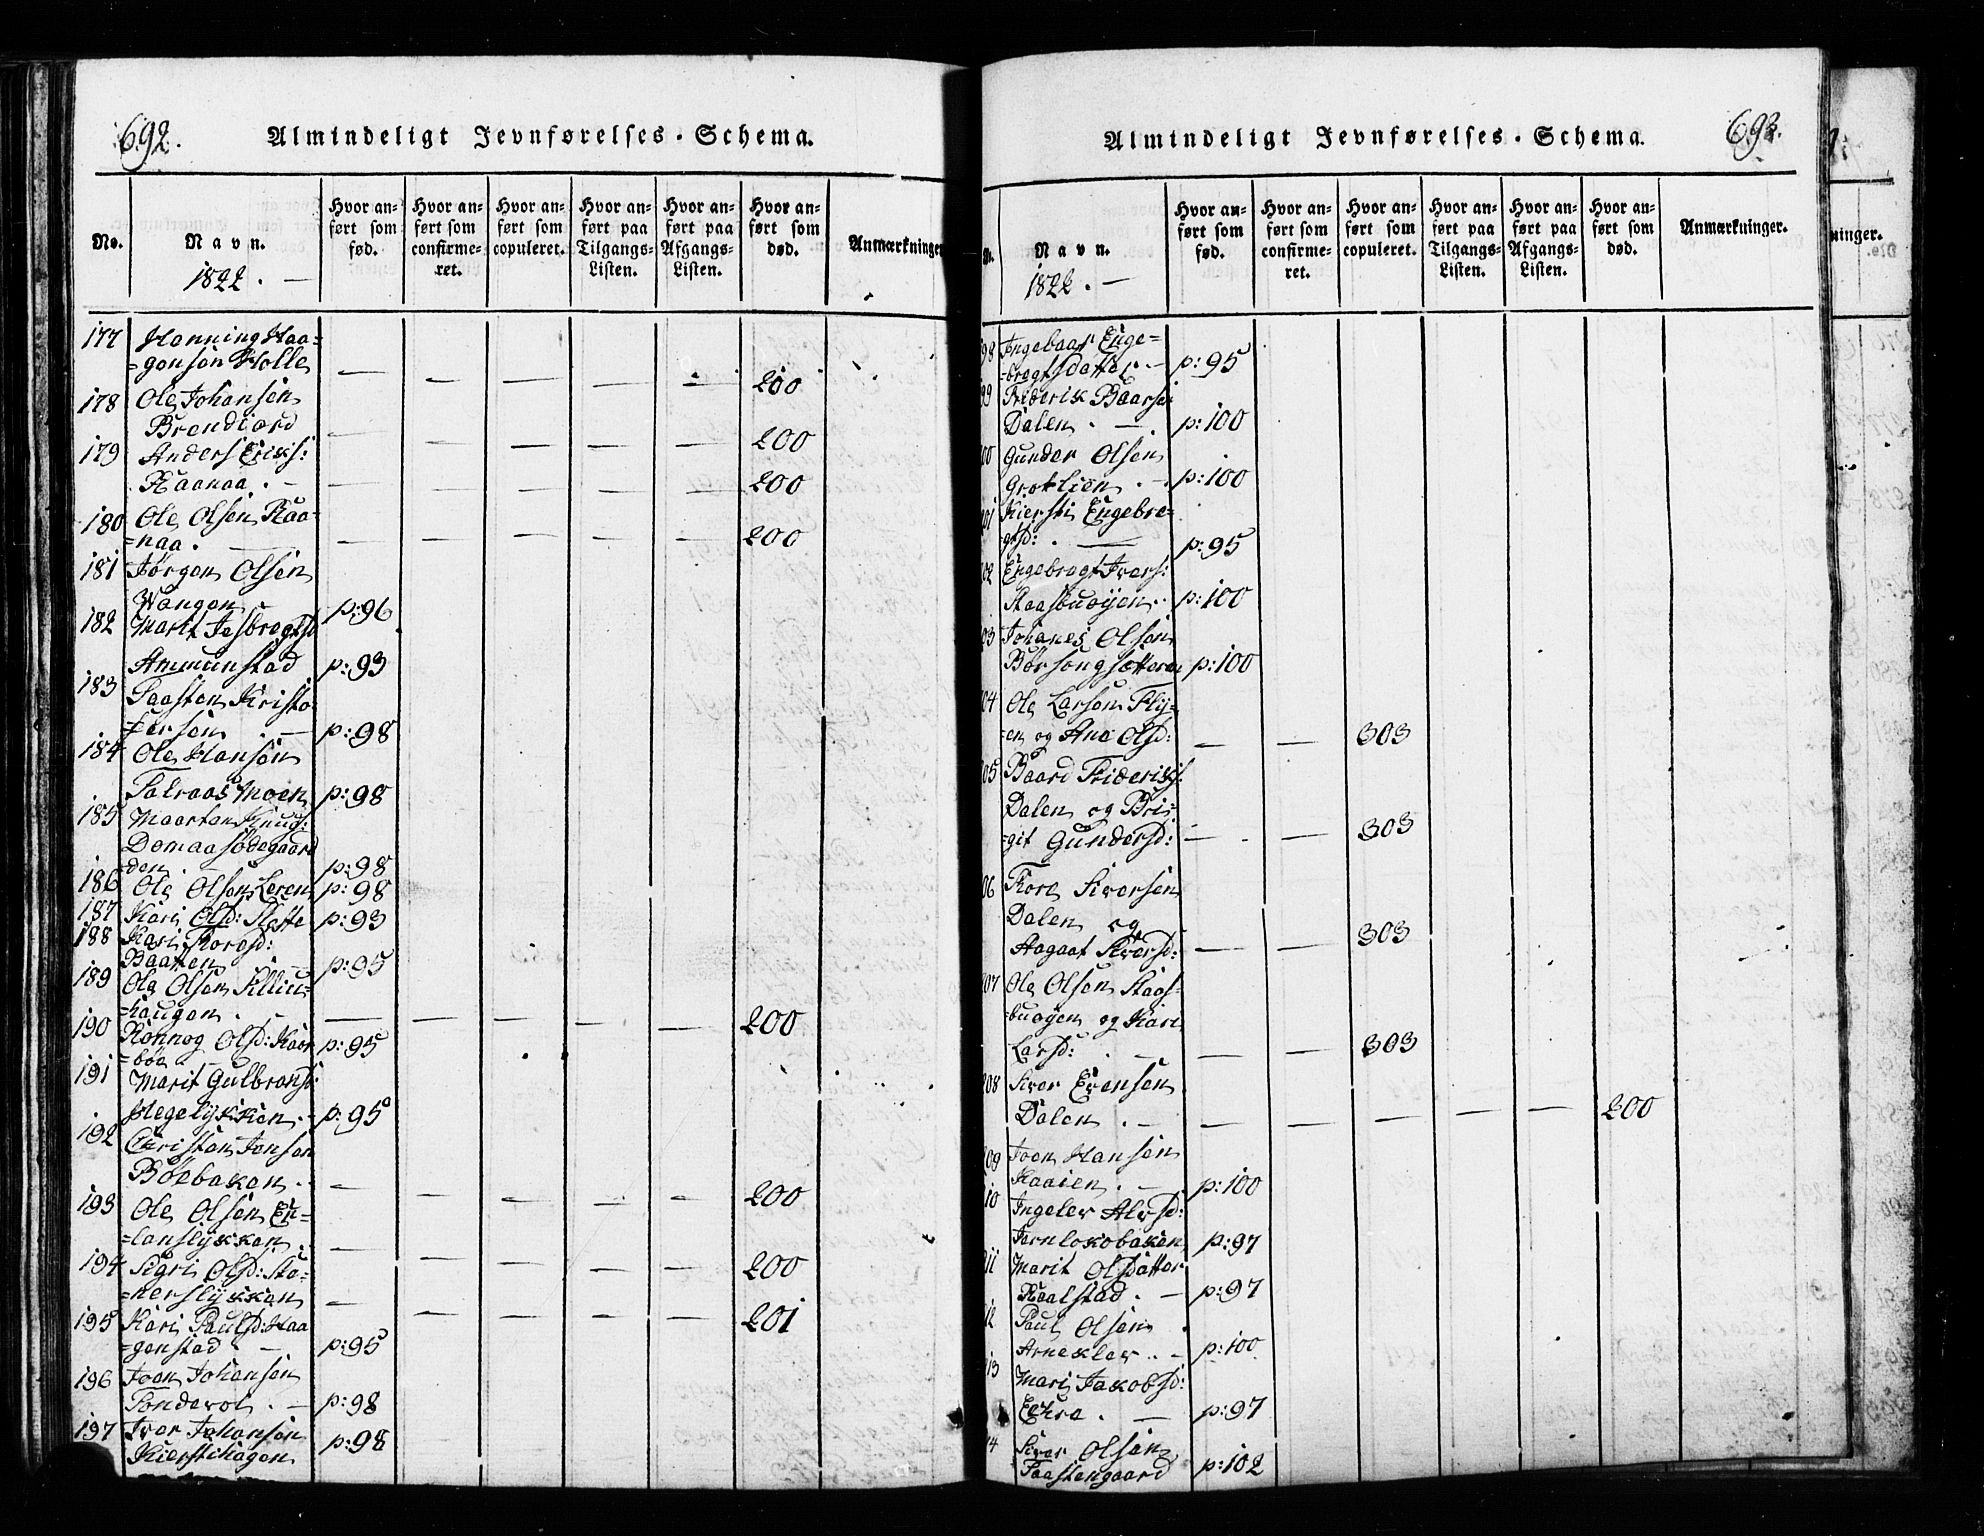 692.
Almindeligt Jevnførelses-Schema.
No.
Navn.
1822. —
Hvor an=
ført som
fød.
Hvor an=
ført som
confirme=
ret.
Hvor an=
ført som
copuleret.
Hvor an=
ført paa
Tilgangs=
Listen.
Hvor an=
ført paa
Afgangs=
Listen.
Hvor an=
ført som
død.
Anmærkninger
177 Henning Haa=
=gensen Holle — — — — — 200
178 Ole Johansen
Brendiord — — — — — 200
179 Anders Eriks:
Raanaa. — — — — — — 200
180 Ole Olsen Raa=
=naa. — — — — — — 200
181 Jørgen Olsen
Wangen p:96
182 Marit Jesbregtsd
Ammunstad p:93
183 Saasten Kristo=
=fersen. — p:98
184 Ole Hansen
Talraas Moen p:98
185 Maarten Knud:
Domaasødegaard
=den. p:98
186 Ole Olsen Leren p:98
187 Kari Olsd: Slette p:93
188 Kari Toresd:
Baatten p:95
189 Ole Olsen Sillin=
=haugen. — — — — — 200
190 Rønnog Olsd: Kaar
=bøa p:95
191 Marit Gulbransd:
Hegelykkien. p:95
192 Christen Jensen
Böebakken. — — — — — 200
193 Ole Olsen En=
=lanslykken. — — — — — 200
194 Sigri Olsd: Sta=
=nerslykken — — — — — 201
195 Kari Paulsd: Haa
=genstad — p:95
196 Joen Johansen
Tonderoi. — p:98
197 Iver Johansen
Kierstihagen p:98
Almindeligt Jevnførelses-Schema.
693.
Navn.
1822. —
Hvor an=
ført som
fød.
Hvor an=
ført som
confirme=
ret.
Hvor an=
ført som
copuleret.
Hvor an=
ført paa
Tilgangs=
Listen.
Hvor an=
ført paa
Afgangs=
Listen.
Hvor an=
ført som
død.
Anmærkninger.
98 Ingebaar Enge=
=bregtsdatter. — p:95
99 Friderik Baarse
Dalen. — p:100
00 Gunder Olsen
Grotlien. — p:100
01 Kiersti Engebre=
gtsd: — p:95
02 Engebregt Ivers:
Staasbuøyen. p:100
03 Johanes Olsen
Børsongsætteren p:100
04 Ole Larsen Fly=
=en og Ane Olsd: — — 303
05 Baard Frideriks:
Dalen og Bri=
=git Gundersd: — — 303
06 Tore Siversen
Dalen og
Aagaat Siversd: — — 303
07 Ole Olsen Staas=
buøyen og Kari
Larsd: — — — 303
08 Siver Evensen
Dalen. — — — — — — 200
09 Joen Hansen
Kaaien. — p:100
10 Ingelev Alvsd:
Jernlokobaken p:97
11 Marit Olsdatter
Raalstad. — p:97
12 Paul Olsen
Arneklev. — p:100
13 Mari Jakobsd:
Echre. — p:97
14 Siver Olsen
Saastengaard p:102
ninger.